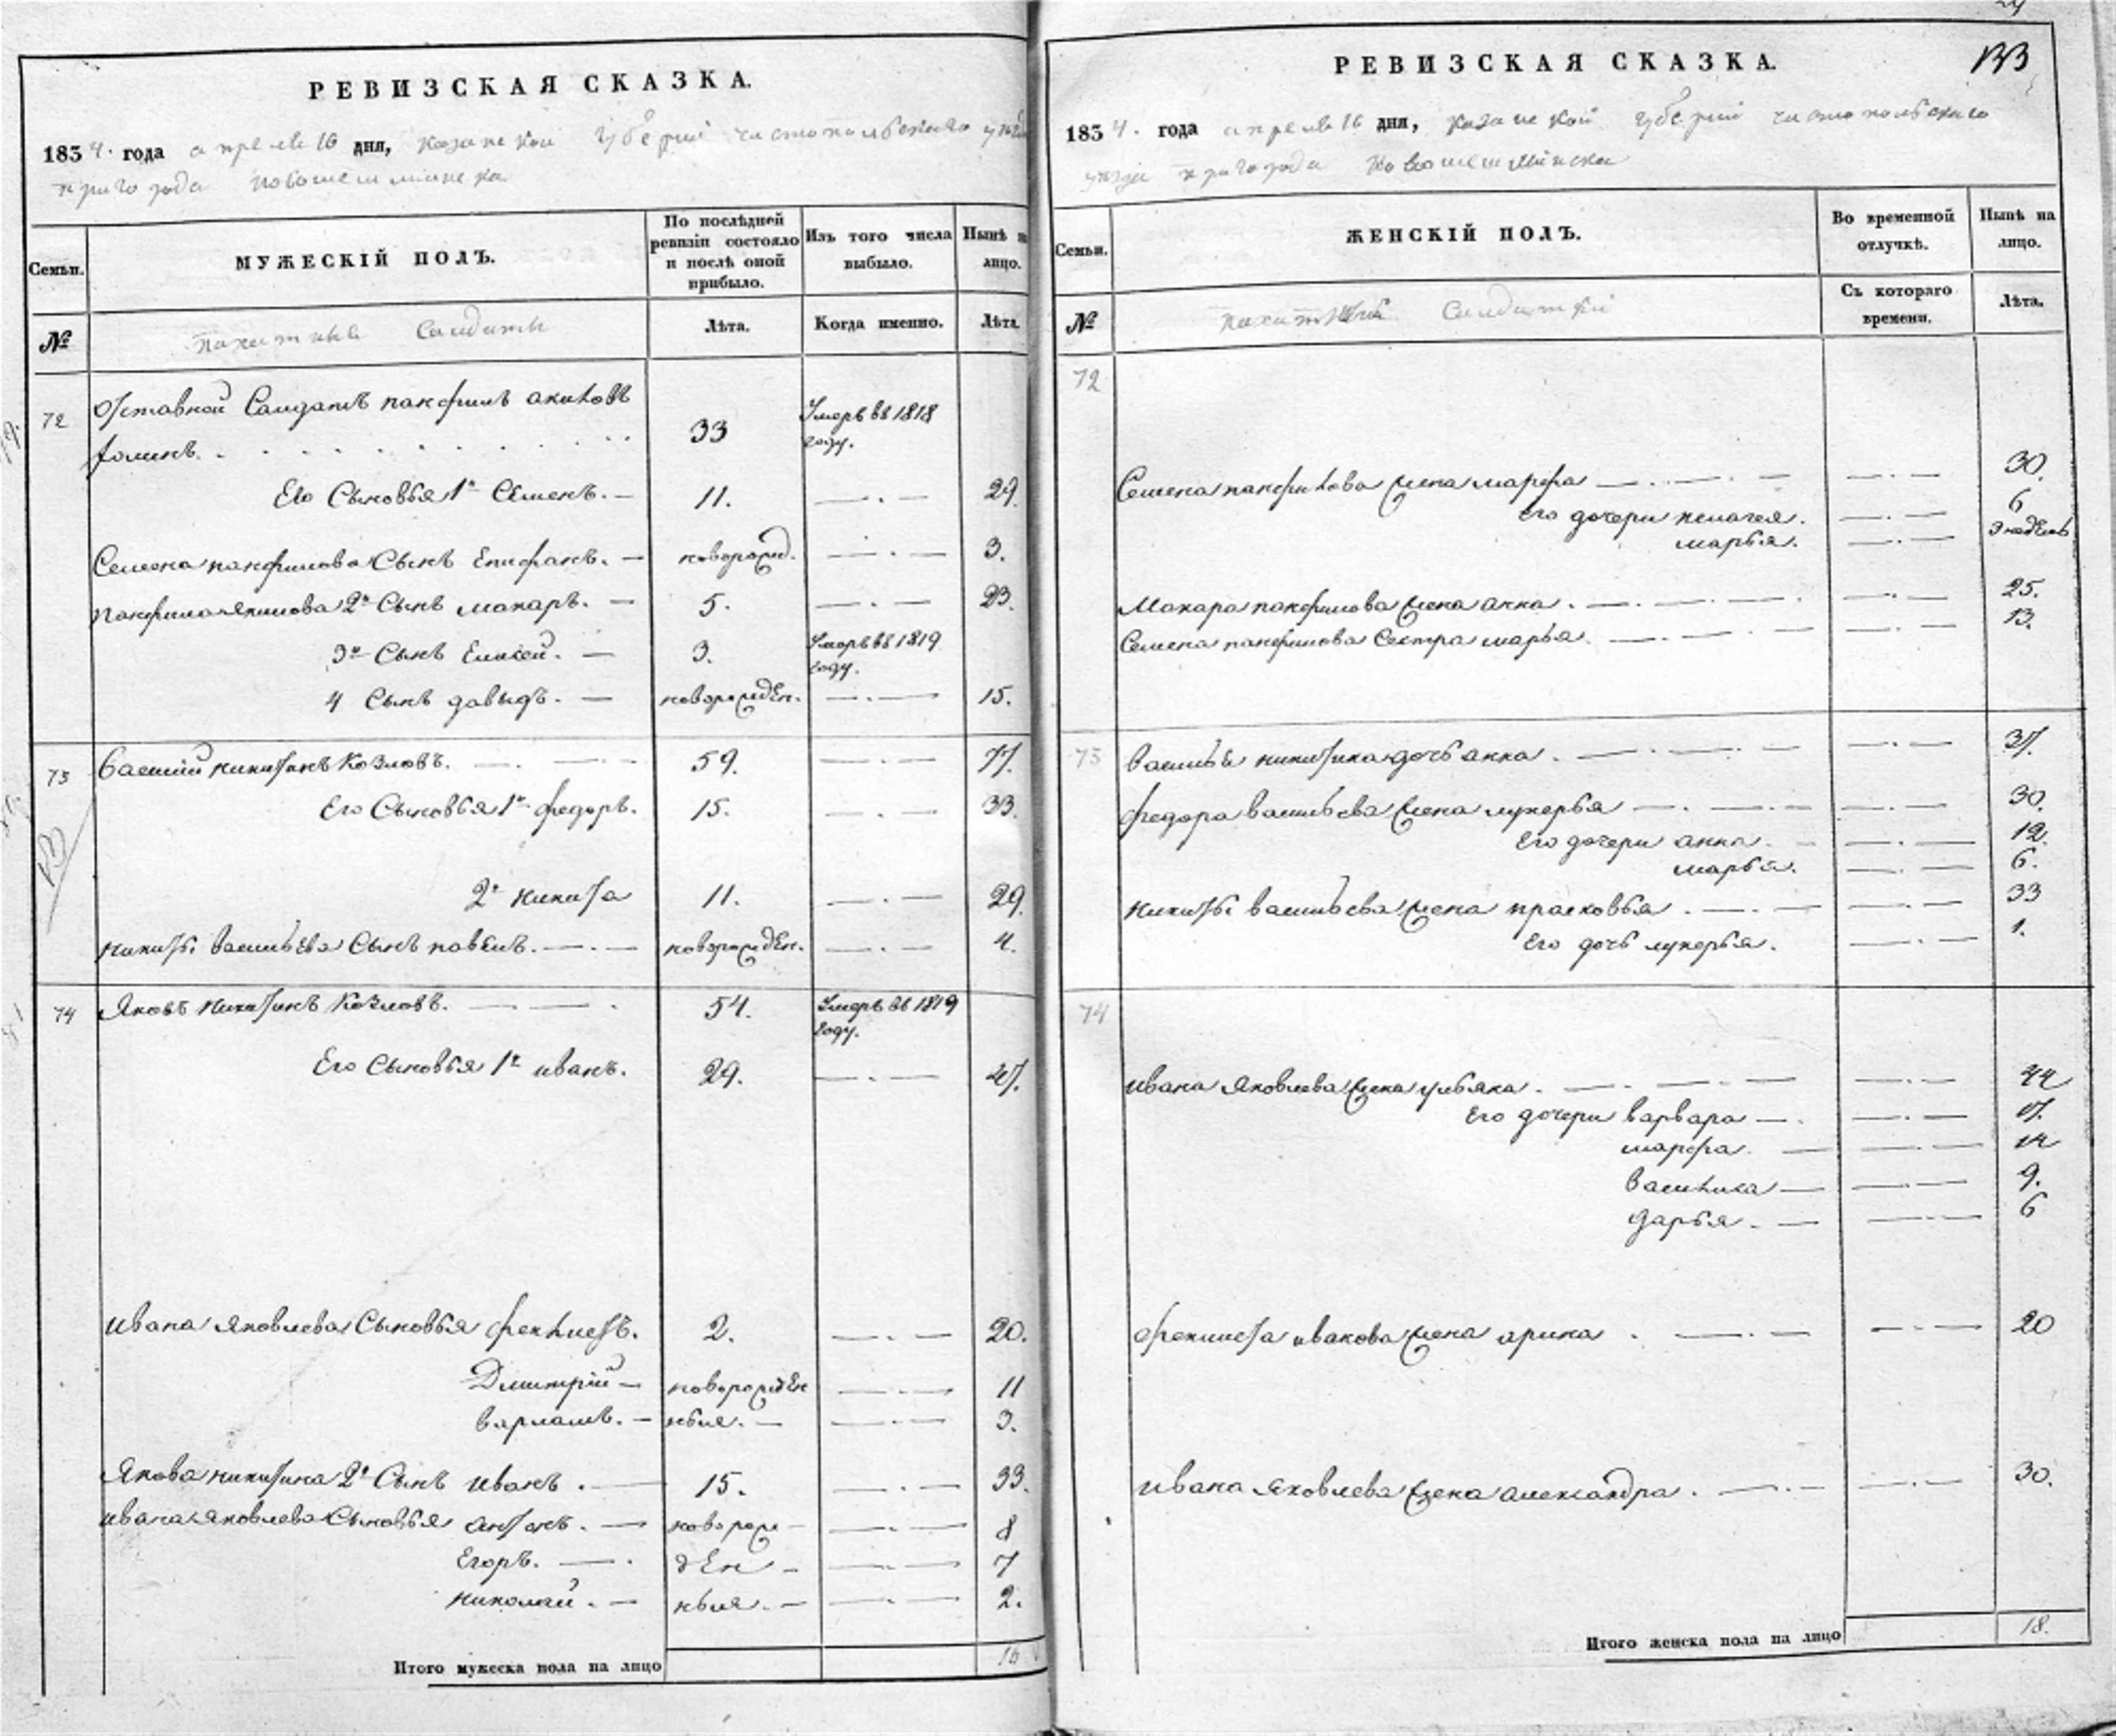 РЕВИЗСКАЯ СКАЗКА.
1834. года апреля 16 дня, казанской губернии чистопольскаго уезда
пригорода новошешминска
Семьи.
МУЖЕСКІЙ ПОЛЪ.
По послѣдней ревизіи состояло и послѣ оной прибыло.
Изъ того числа выбыло.
Нынѣ на лицо.
№
пахатные Салдаты
Лѣта.
Когда именно.
Лѣта.
72
Отставной Салдатъ панфилъ акиловъ
фоминъ.
33
Умеръ въ 1818 году.
Его Сыновья 1й Семенъ. 11. 29.
Семена панфилова Сынъ Епифанъ. новорожд. 3.
Панфила Якимова 2й Сынъ макаръ. 5. 23.
3й Сынъ Елисей. 3. Умеръ въ 1819 году.
4 Сынъ давыдъ. новорожден. 15.
73 Василий никитинъ Козловъ. 59. 77.
Его Сыновья 1й федоръ. 15. 33.
2й никита 11. 29.
никиты васильева Сынъ павелъ. новорожден. 4.
74 Яковъ никитинъ Козловъ. 54. Умеръ въ 1819 году.
Его Сыновья 1й иванъ. 29. 47.
ивана яковлева Сыновья феклистъ. 2. 20.
Дмитрій новорожден 11
варламъ. ныя. 3.
Якова никитина 2й Сынъ иванъ. 15. 33.
ивана яковлева Сыновья антонъ. новорож 8
Егоръ. ден 7
николай. ныя. 2.
Итого мужеска пола на лицо 16
133
РЕВИЗСКАЯ СКАЗКА.
1834. года апреля 16 дня, казанской губернии чистопольскаго
уезда пригорода новошешминска
Семьи.
ЖЕНСКІЙ ПОЛЪ.
Во временной отлучкѣ.
Нынѣ на лицо.
№
пахатные Салдатки
Съ котораго времени.
Лѣта.
72
Семена панфилова жена марфа 30.
Его дочери пелагея. 6
марья. 3 недель
Макара панфилова жена анна. 25.
Семена панфилова Сестра марья. 13.
73 василья никитина дочь анна. 37.
федора васильева жена лукерья 30.
Его дочери анна. 12.
марья. 6.
никиты васильева жена прасковья. 33
Его дочь лукерья. 1.
74
ивана яковлева жена ульяна. 44
Его дочери варвара 17.
марфа. 14
василиса 9.
дарья. 6
феклиста иванова жена арина. 20
ивана яковлева жена александра. 30.
Итого женска пола на лицо 18.